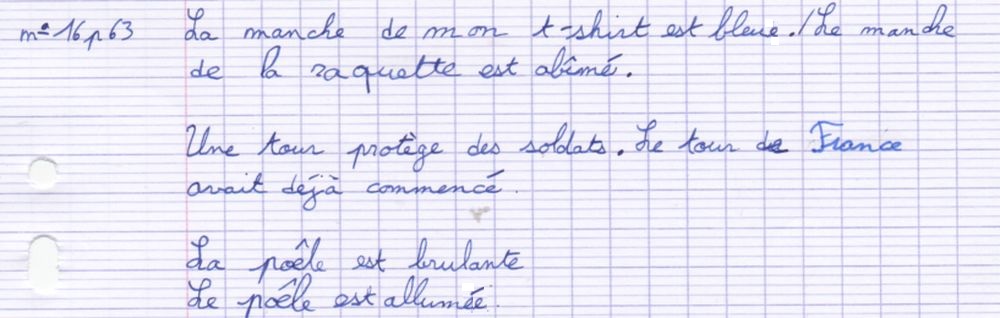 n° 16 p 63 La manche de mon t-shirt est bleue. / Le manche
de la raquette est abîmé.
Une tour protège des soldats. Le tour de France
avait déjà commencé.
La poêle est brulante
Le poêle est allumée.